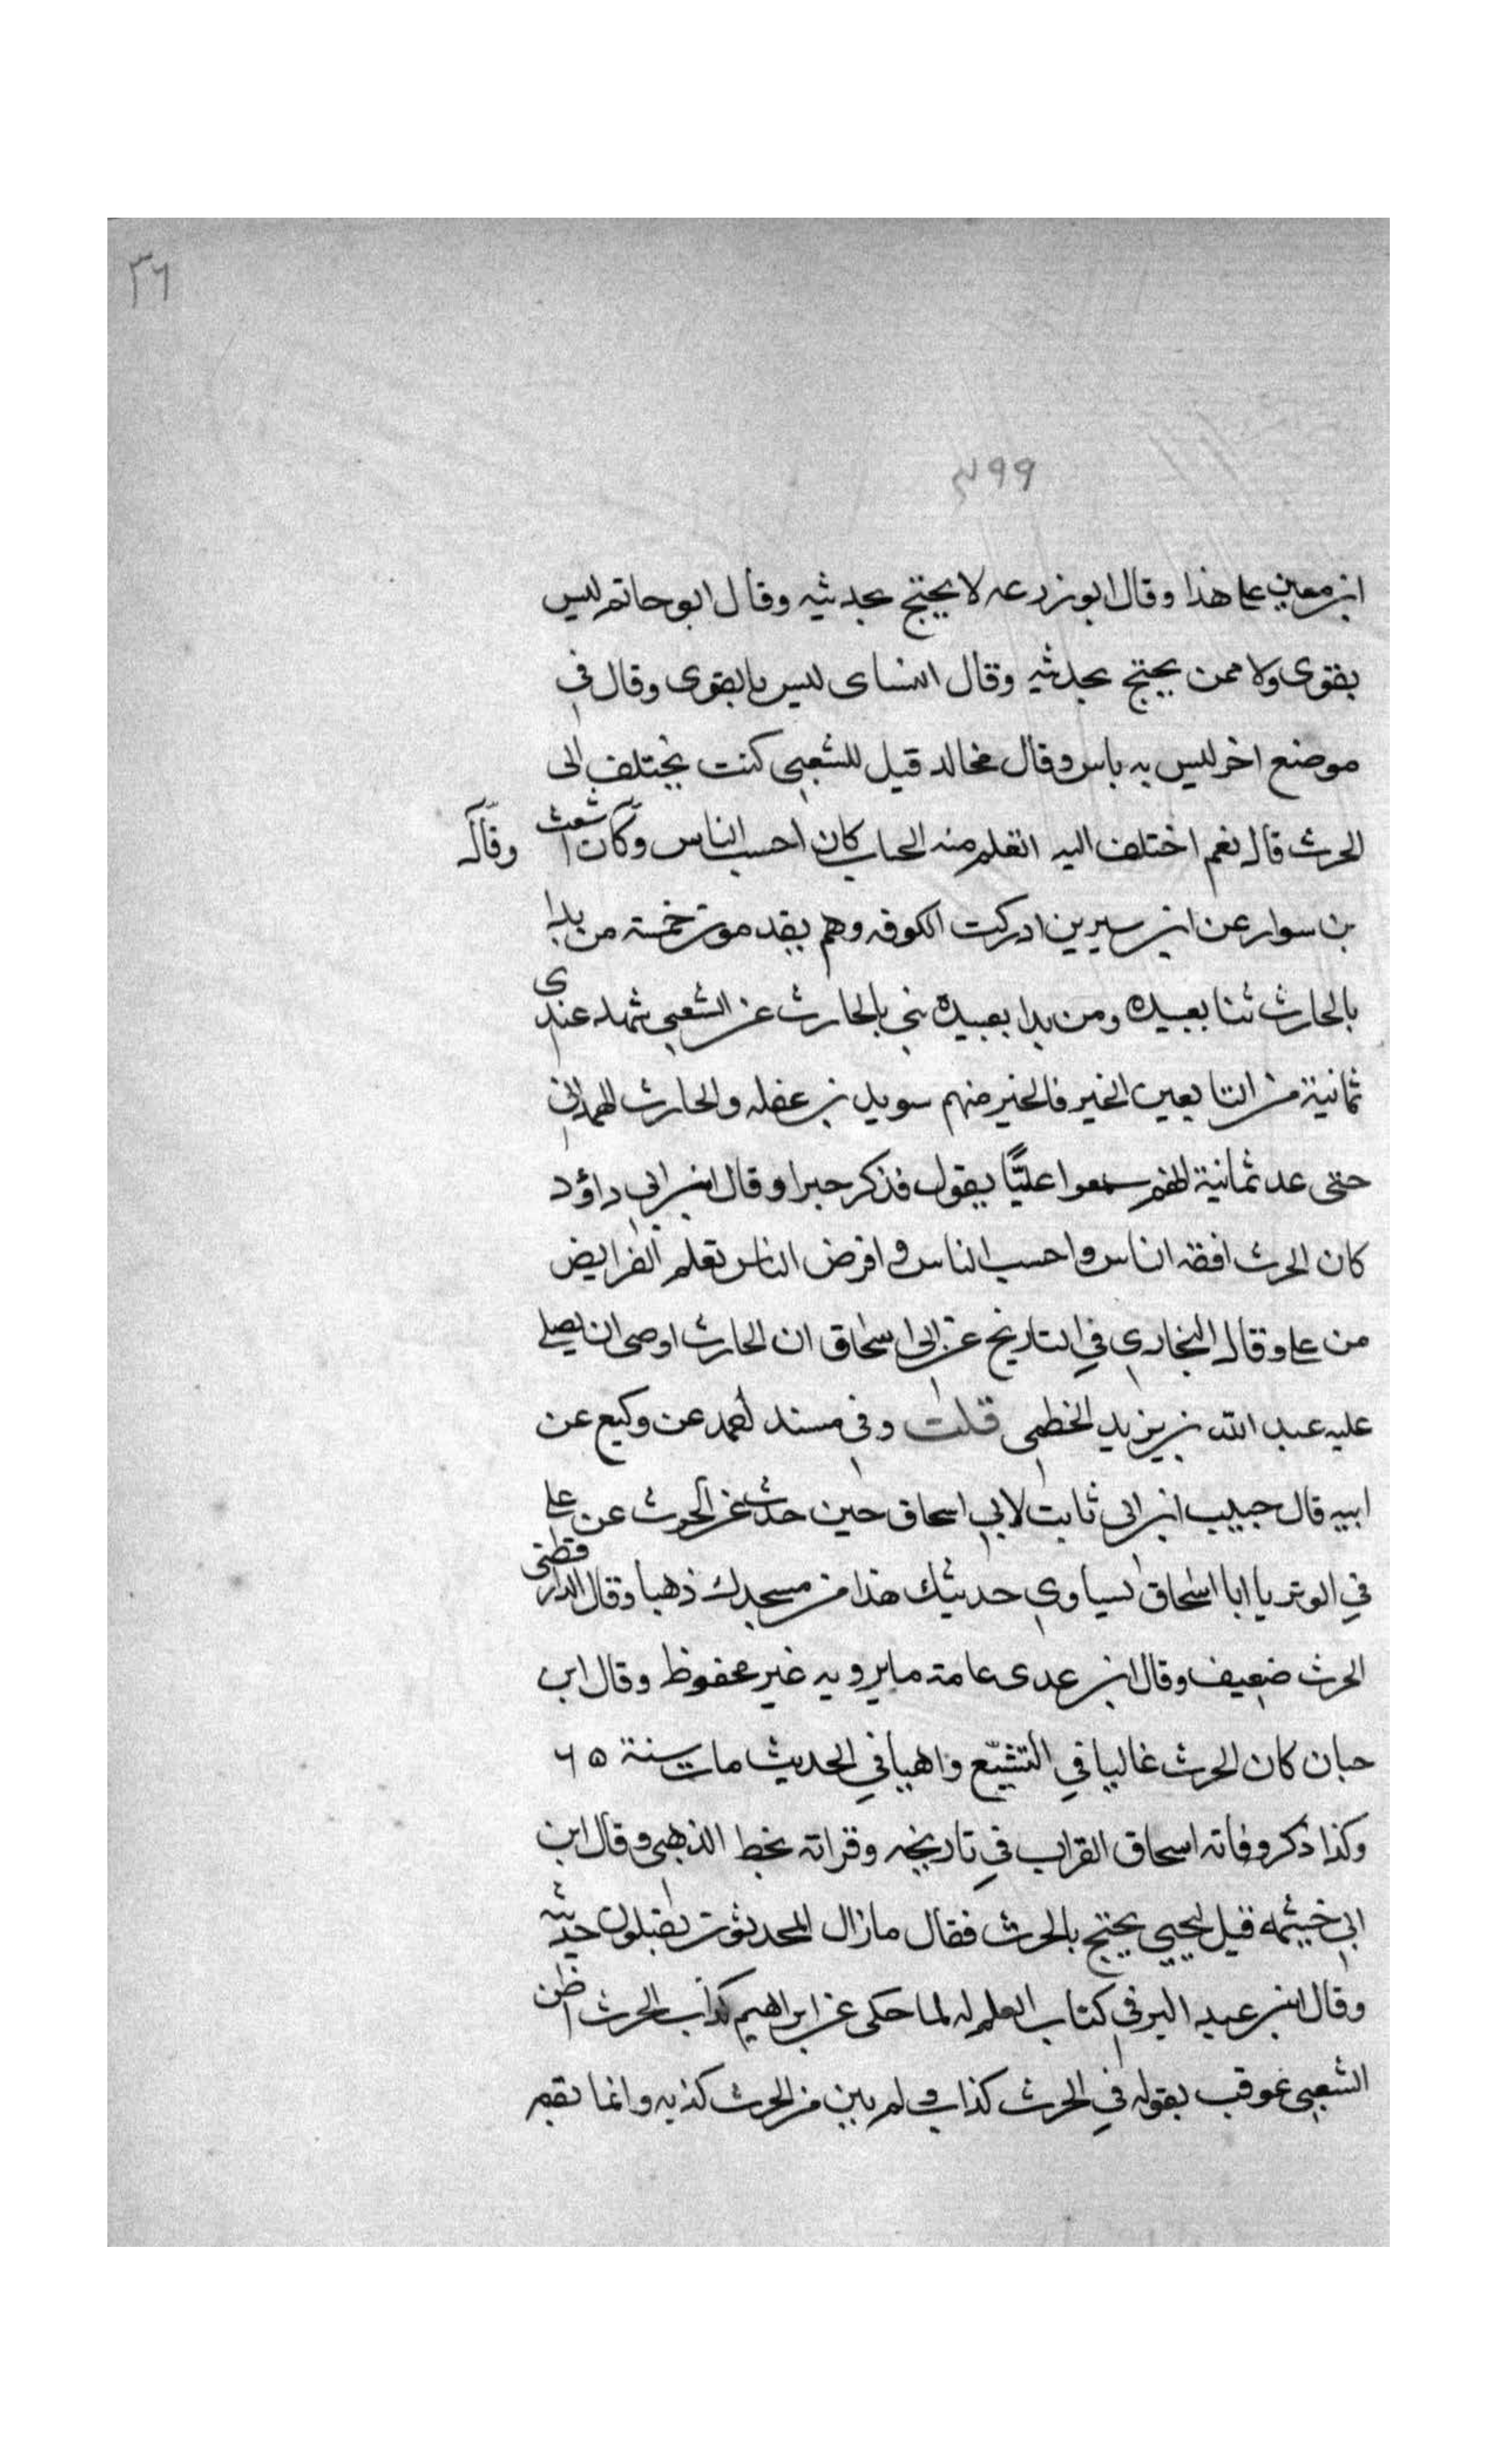 ٣٦
٤٩٩
ابن معين على هذا وقال ابو زرعه لا يحتج بحديثه وقال ابو حاتم ليس
بقوى ولا ممن يحتج بحديثه وقال النساى ليس بالقوى وقال في
موضع اخر ليس به باس وقال مخالد قيل للشعبي كنت يختلف الى
الحرث قال نعم اختلف اليه اتعلم منه الحساب كان احسب الناس وكان اشعث وقال
بن سوار عن ابن سيرين ادركت الكوفه وهم يقدمون خمسة من بدا
بالحارث ثنا بعبيده ومن بدا بعبيدة ثنى بالحارث عن الشعبي شهد عندى
ثمانية من التابعين الخير فالخير منهم سويد بن غفله والحارث الهمدانى
حتى عد ثمانية انهم سمعوا عليًّا يقول فذكر خبرا وقال ابن ابي داؤد
كان الحرث افقه الناس واحسب الناس و افرض الناس تعلم الفرايض
من على وقال البخاري في التاريخ عن ابي اسحاق ان الحارث اوصى ان يصلى
عليه عبد الله بن يزيد الخطمى قلت وفى مسند احمد عن وكيع عن
ابيه قال حبيب ابن ابى ثابت لابي اسحاق حين حدث عن الحرث عن على
في الوتر يا ابا اسحاق يساوي حديثك هذا من مسجدك ذهبا وقال الدارقطنى
الحرث ضعيف وقال ابن عدى عامة ما يرويه غير محفوظ وقال ابن
حبان كان الحرث غاليا في التشيّع واهيا في الحديث مات سنة ٦٥
وكذا ذكر وفاته اسحاق القراب في تاريخه وقراته بخط الذهبي وقال ابن
ابي خيثمه قيل ليحيى يحتج بالحرث فقال ما زال المحدثون يقبلون حديثه
وقال ابن عبد البر في كتاب العلم له لما حكى عن ابراهيم كذاب الحرث اظن
الشعبي عوقب بقوله في الحرث كذاب و لم يبن من الحرث كذبه وانما نقم